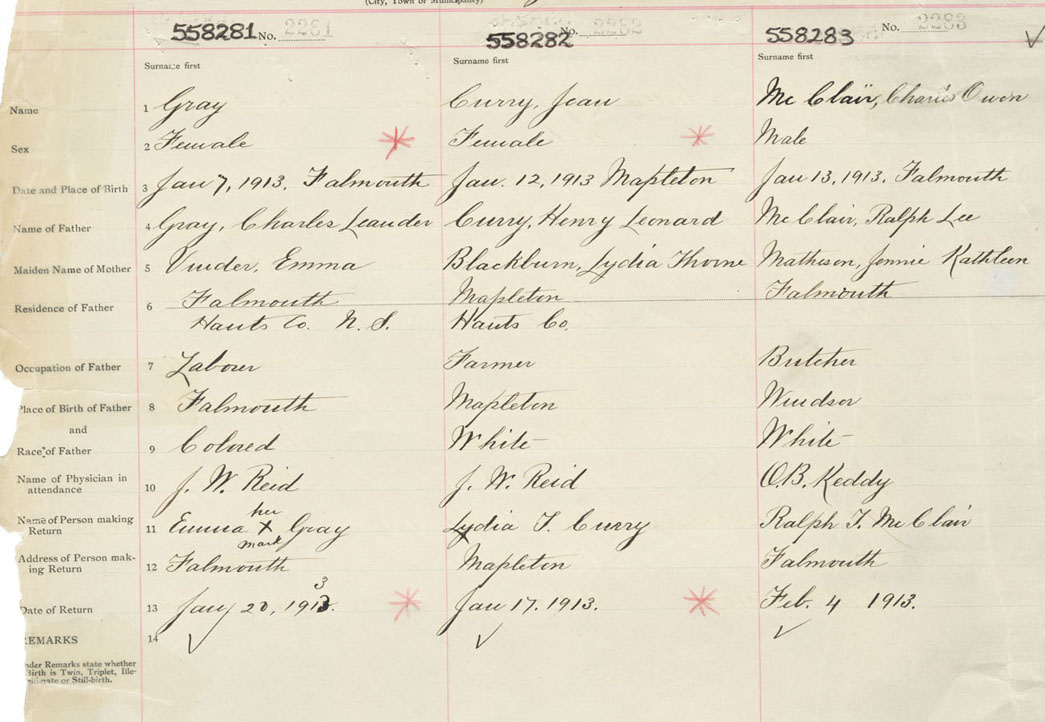 (City, Town or Municipality)
558281 No. 2281 558282 No. 2282 558283 No. 2283
Surname first Surname first Surname first
Name 1 Gray Curry, Jean Mc Clair, Charles Owen
Sex 2 Female Female Male
Date and Place of Birth 3 Jan 7, 1913. Falmouth Jan. 12, 1913 Mapleton Jan 13, 1913. Falmouth
Name of Father 4 Gray, Charles Leander Curry, Henry Leonard McClair, Ralph Lee
Maiden Name of Mother 5 Emma Blackburn, Lydia Thorne Matheson, Jennie Kathleen
Residence of Father 6 Falmouth Mapleton Falmouth
Hants Co. N. S. Hants Co.
Occupation of Father 7 Labour Farmer Butcher
Place of Birth of Father 8 Falmouth Mapleton Windsor
and
Race of Father 9 Colored White White
Name of Physician in
attendance 10 J. W. Reid J. W. Reid O.B. Keddy
her
Name of Person making
Return 11 Emma X Gray Lydia T. Curry Ralph L. McClair
mark
Address of Person mak-
ing Return 12 Falmouth Mapleton Falmouth
3
Date of Return 13 Jany 20, 1913. Jan 17. 1913. Feb. 4 1913.
EMARKS 14
nder Remarks state whether
Birth is Twin, Triplet, Ille-
gitimate or Still-birth.